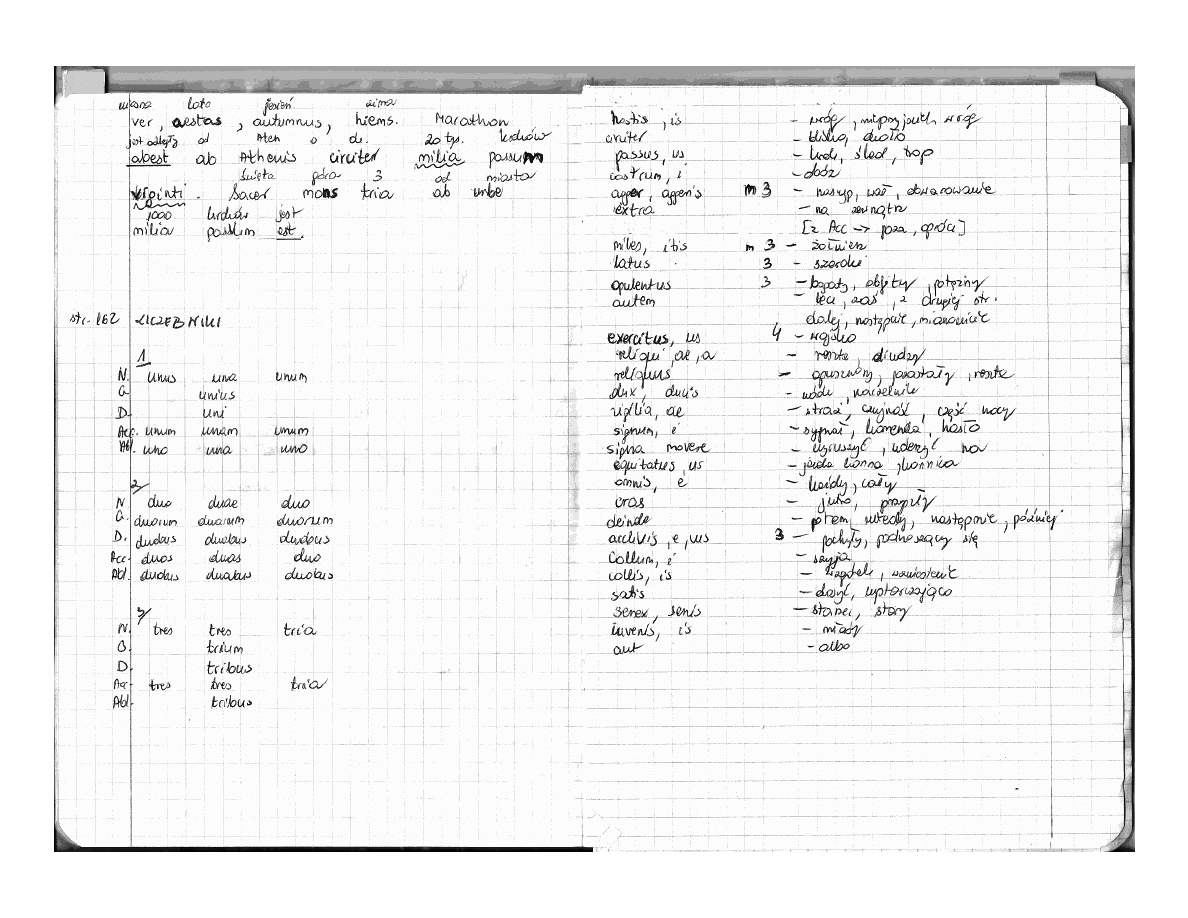 wiosna lato jesień zima
ver, aestas, autumnus, hiems. Marathon
jest odległy od Aten o ok. 20 tys. kroków
abest ab Athenis circiter milia passuum
święta góra 3 od miasta
viginti. Sacer mons tria ab urbe
1000 kroków jest
milia passum est.
str. 162 LICZEBNIKI
1
N. unus una unum
G. unius
D. uni
Acc. unum unam unum
Abl. uno una uno
2/
N duo duae duo
G. duorum duarum duorum
D. duobus duabus duobus
Acc. duos duas duo
Abl. duobus duabus duobus
3/
N. tres tres tria
G. trium
D. tribus
Acc. tres tres tria
Abl. tribus
hostis, is - wróg, nieprzyjaciel, wróg
circiter - blisko, około
passus, us - krok, ślad, trop
castrum, i - obóz
agger, aggeris m 3 - nasyp, wał, obwarowanie
extra - na zewnątrz
[z Acc -> poza, oprócz]
miles, itis m 3 - żołnierz
latus 3 - szeroki
opulentus 3 - bogaty, obfity, potężny
autem - lecz, zaś, z drugiej str.
dalej, następnie, mianowicie
exercitus, us 4 - wojsko
reliqui, ae, a - reszta,
reliquus - opuszczony, pozostały, reszta
dux, ducis - wódz, naczelnik
vigilia, ae - straż, czujność, część nocy
signum, i - sygnał, komenda, hasło
signa movere - wyruszyć, uderzyć na
equitatus, us - jazda konna, konnica
omnis, e - każdy, cały
cras - jutro, przyszły
deinde - potem, wtedy, następnie, później
3 - pochyły, podnoszący się
Collum, i - szyja
collis, is - wzgórek, wzniesienie
satis - dosyć, wystarczająco
senex, senis - starzec, stary
iuvenis, is - młody
aut - albo